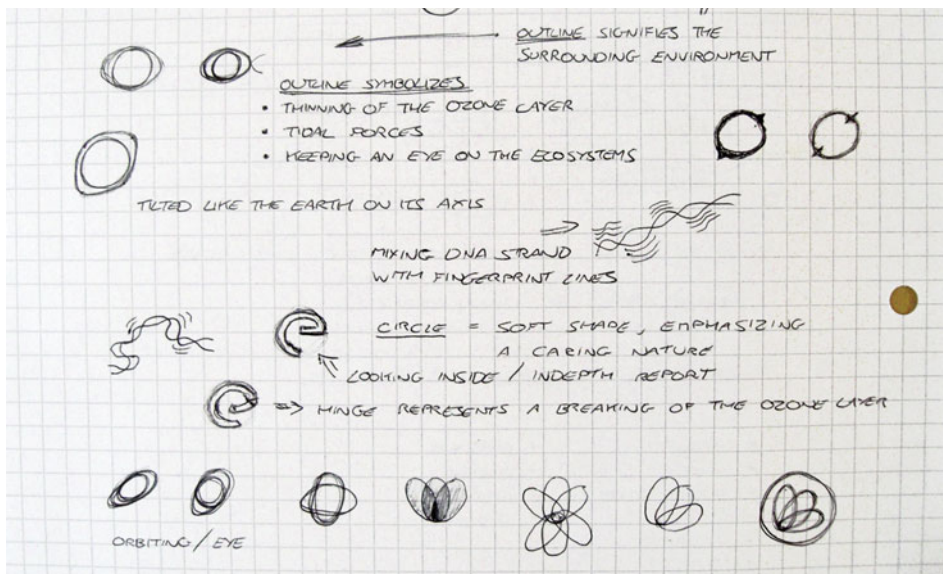 OUTLINE SIGNIFIES THE
SURROUNDING ENVIRONMENT
OUTLINE SYMBOLIZES
• THINNING OF THE OZONE LAYER
• TIDAL FORCES
• KEEPING AN EYE ON THE ECOSYSTEMS
TILTED LIKE THE EARTH ON ITS AXIS
MIXING DNA STRAND
WITH FINGERPRINT LINES
CIRCLE = SOFT SHAPE, EMPHASIZING
A CARING NATURE
LOOKING INSIDE / INDEPTH REPORT
=> HINGE REPRESENTS A BREAKING OF THE OZONE LAYER
ORBITING / EYE